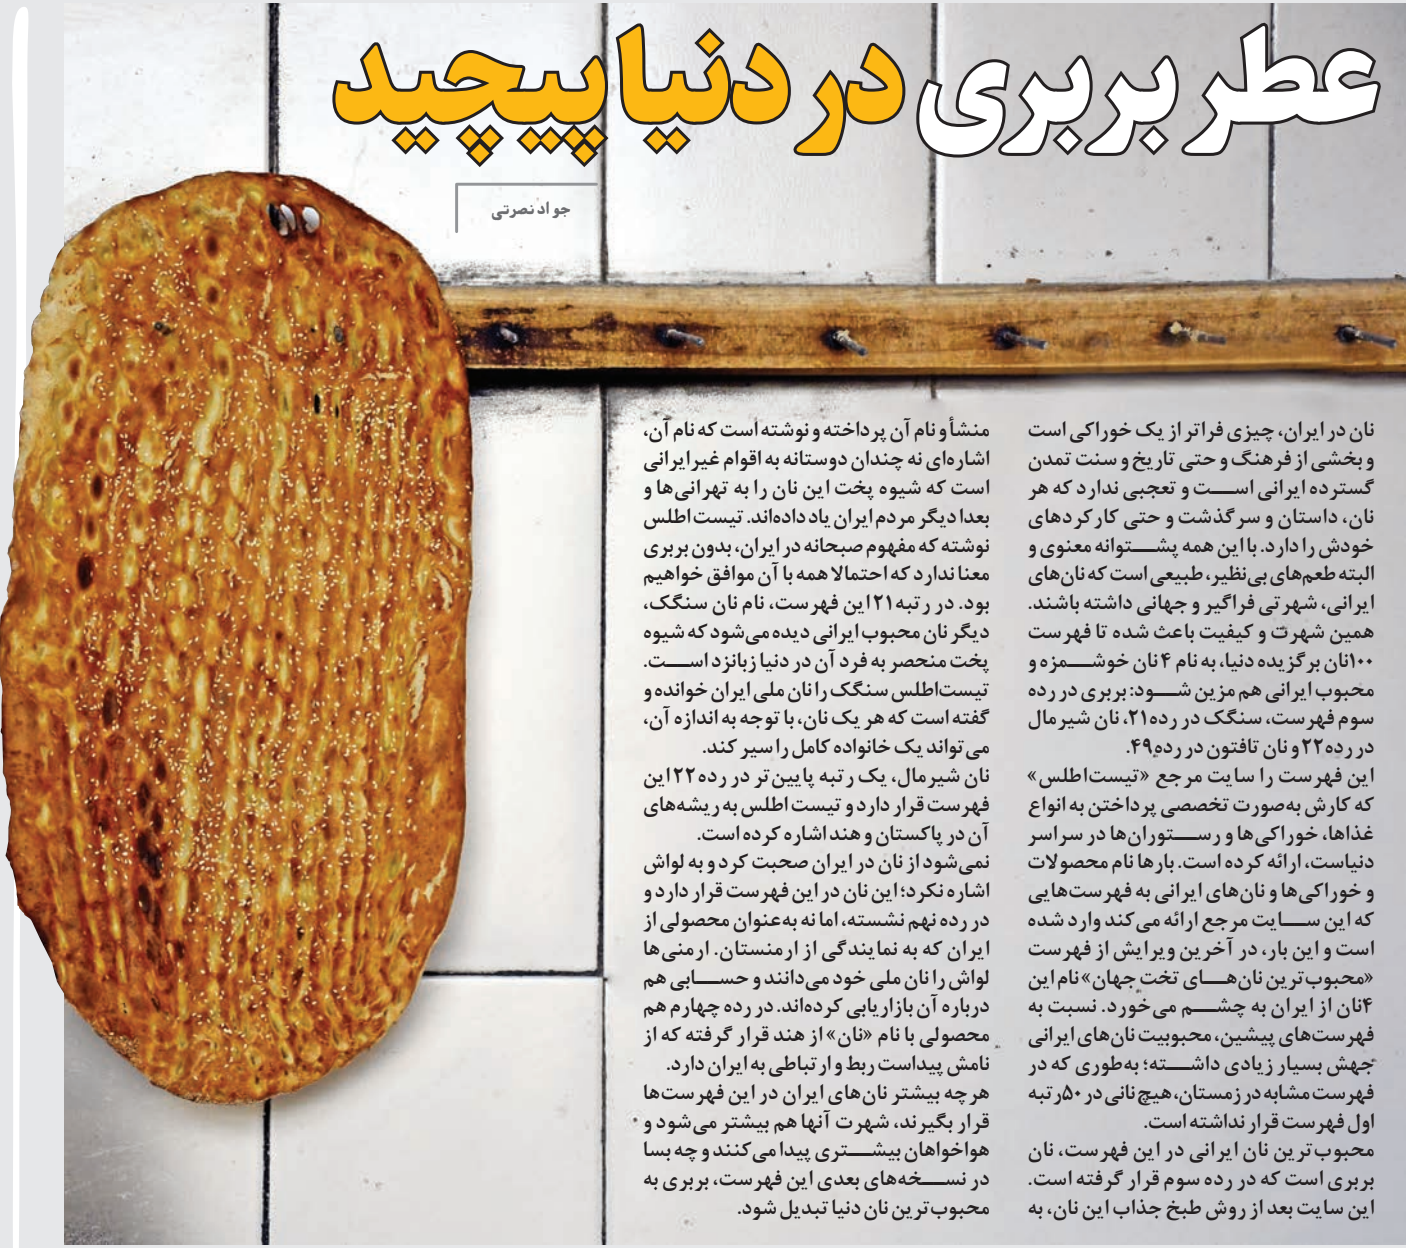 عطر بربری در دنیا پیچید
جواد نصرتی
نان در ایران، چیزی فراتر از یک خوراکی است
و بخشی از فرهنگ و حتی تاریخ و سنت تمدن
گسترده ایرانی است و تعجبی ندارد که هر
نان، داستان و سرگذشت و حتی کارکردهای
خودش را دارد. با این همه پشتوانه معنوی و
البته طعم‌های بی‌نظیر، طبیعی است که نان‌های
ایرانی، شهرتی فراگیر و جهانی داشته باشند.
همین شهرت و کیفیت باعث شده تا فهرست
۱۰۰نان برگزیده دنیا، به نام ۴ نان خوشمزه و
محبوب ایرانی هم مزین شود: بربری در رده
سوم فهرست، سنگک در رده۲۱، نان شیرمال
در رده۲۲ و نان تافتون در رده۴۹.
این فهرست را سایت مرجع «تیست‌اطلس»
که کارش به‌صورت تخصصی پرداختن به انواع
غذاها، خوراکی‌ها و رستوران‌ها در سراسر
دنیاست، ارائه کرده است. بارها نام محصولات
و خوراکی‌ها و نان‌های ایرانی به فهرست‌هایی
که این سایت مرجع ارائه می‌کند وارد شده
است و این بار، در آخرین ویرایش از فهرست
«محبوب‌ترین نان‌های تخت جهان» نام این
۴نان از ایران به چشم می‌خورد. نسبت به
فهرست‌های پیشین، محبوبیت نان‌های ایرانی
جهش بسیار زیادی داشته؛ به‌طوری که در
فهرست مشابه در زمستان، هیچ نانی در ۵۰رتبه
اول فهرست قرار نداشته است.
محبوب‌ترین نان ایرانی در این فهرست، نان
بربری است که در رده سوم قرار گرفته است.
این سایت بعد از روش طبخ جذاب این نان، به
منشأ و نام آن پرداخته و نوشته است که نام آن،
اشاره‌ای نه چندان دوستانه به اقوام غیرایرانی
است که شیوه پخت این نان را به تهرانی‌ها و
بعدا دیگر مردم ایران یاد داده‌اند. تیست اطلس
نوشته که مفهوم صبحانه در ایران، بدون بربری
معنا ندارد که احتمالا همه با آن موافق خواهیم
بود. در رتبه ۲۱این فهرست، نام نان سنگک،
دیگر نان محبوب ایرانی دیده می‌شود که شیوه
پخت منحصر به فرد آن در دنیا زبانزد است.
تیست‌اطلس سنگک را نان ملی ایران خوانده و
گفته است که هر یک نان، با توجه به اندازه آن،
می‌تواند یک خانواده کامل را سیر کند.
نان شیرمال، یک رتبه پایین‌تر در رده ۲۲این
فهرست قرار دارد و تیست اطلس به ریشه‌های
آن در پاکستان و هند اشاره کرده است.
نمی‌شود از نان در ایران صحبت کرد و به لواش
اشاره نکرد؛ این نان در این فهرست قرار دارد و
در رده نهم نشسته، اما نه به‌عنوان محصولی از
ایران که به نمایندگی از ارمنستان. ارمنی‌ها
لواش را نان ملی خود می‌دانند و حسابی هم
درباره آن بازاریابی کرده‌اند. در رده چهارم هم
محصولی با نام «نان» از هند قرار گرفته که از
نامش پیداست ربط و ارتباطی به ایران دارد.
هرچه بیشتر نان‌های ایران در این فهرست‌ها
قرار بگیرند، شهرت آنها هم بیشتر می‌شود و
هواخواهان بیشتری پیدا می‌کنند و چه بسا
در نسخه‌های بعدی این فهرست، بربری به
محبوب‌ترین نان دنیا تبدیل شود.